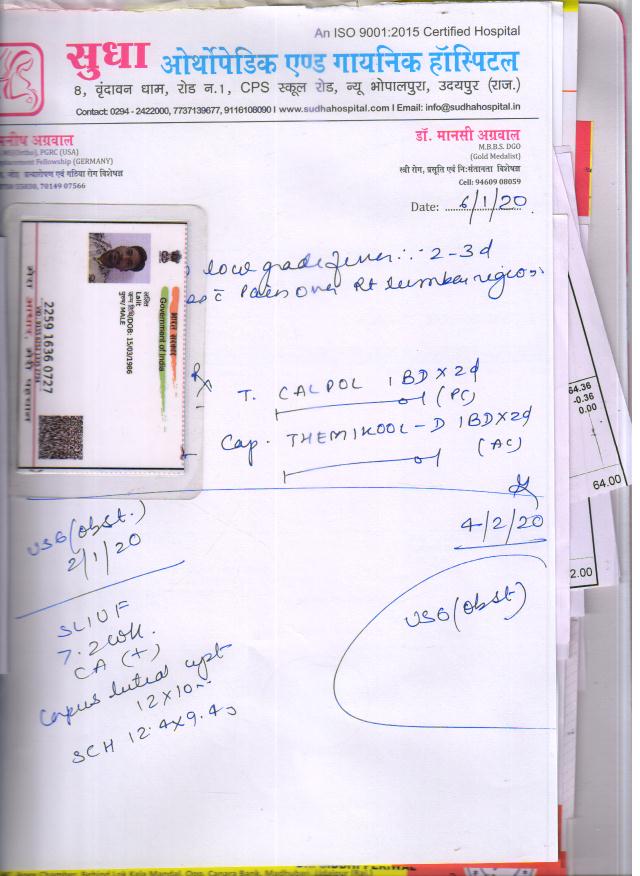 An ISO 9001:2015 Certified Hospital
सुधा ओर्थोपेडिक एण्ड गायनिक हॉस्पिटल
8, वृंदावन धाम, रोड न.1, CPS स्कूल रोड, न्यू भोपालपुरा, उदयपुर (राज.)
Contact: 0294 - 2422000, 7737139677, 9116108090 I www.sudhahospital.com I Email: info@sudhahospital.in
नीष अग्रवाल
PGRC (USA)
Fellowship (GERMANY)
प्रत्यारोपण एवं गठिया रोग विशेषज्ञ
70149 07566
डॉ. मानसी अग्रवाल
M.B.B.S. DGO
(Gold Medalist)
स्त्री रोग, प्रसूति एवं नि:संतानता विशेषज्ञ
Cell: 94609 08059
Date: 6/1/20
low grade fever ∴ 2-3d
Pain over Rt lumbar region
भारत सरकार
Government of India
ललित
Lalit
जन्म तिथि/DOB: 15/03/1986
पुरुष/ MALE
2259 1636 0727
मेरा आधार, मेरी पहचान
Rx
T. CALPOL 1BD x 2d
(PC)
Cap. THEMIKOOL-D 1BD x 2d
(AC)
4/2/20
USG (obst.)
2/1/20
USG (obst)
SLIUF
7.2 wk.
CA (+)
Corpus luteal cyst
12 x 10
SCH 12.4 x 9.4
64.36
-0.36
0.00
64.00
2.00